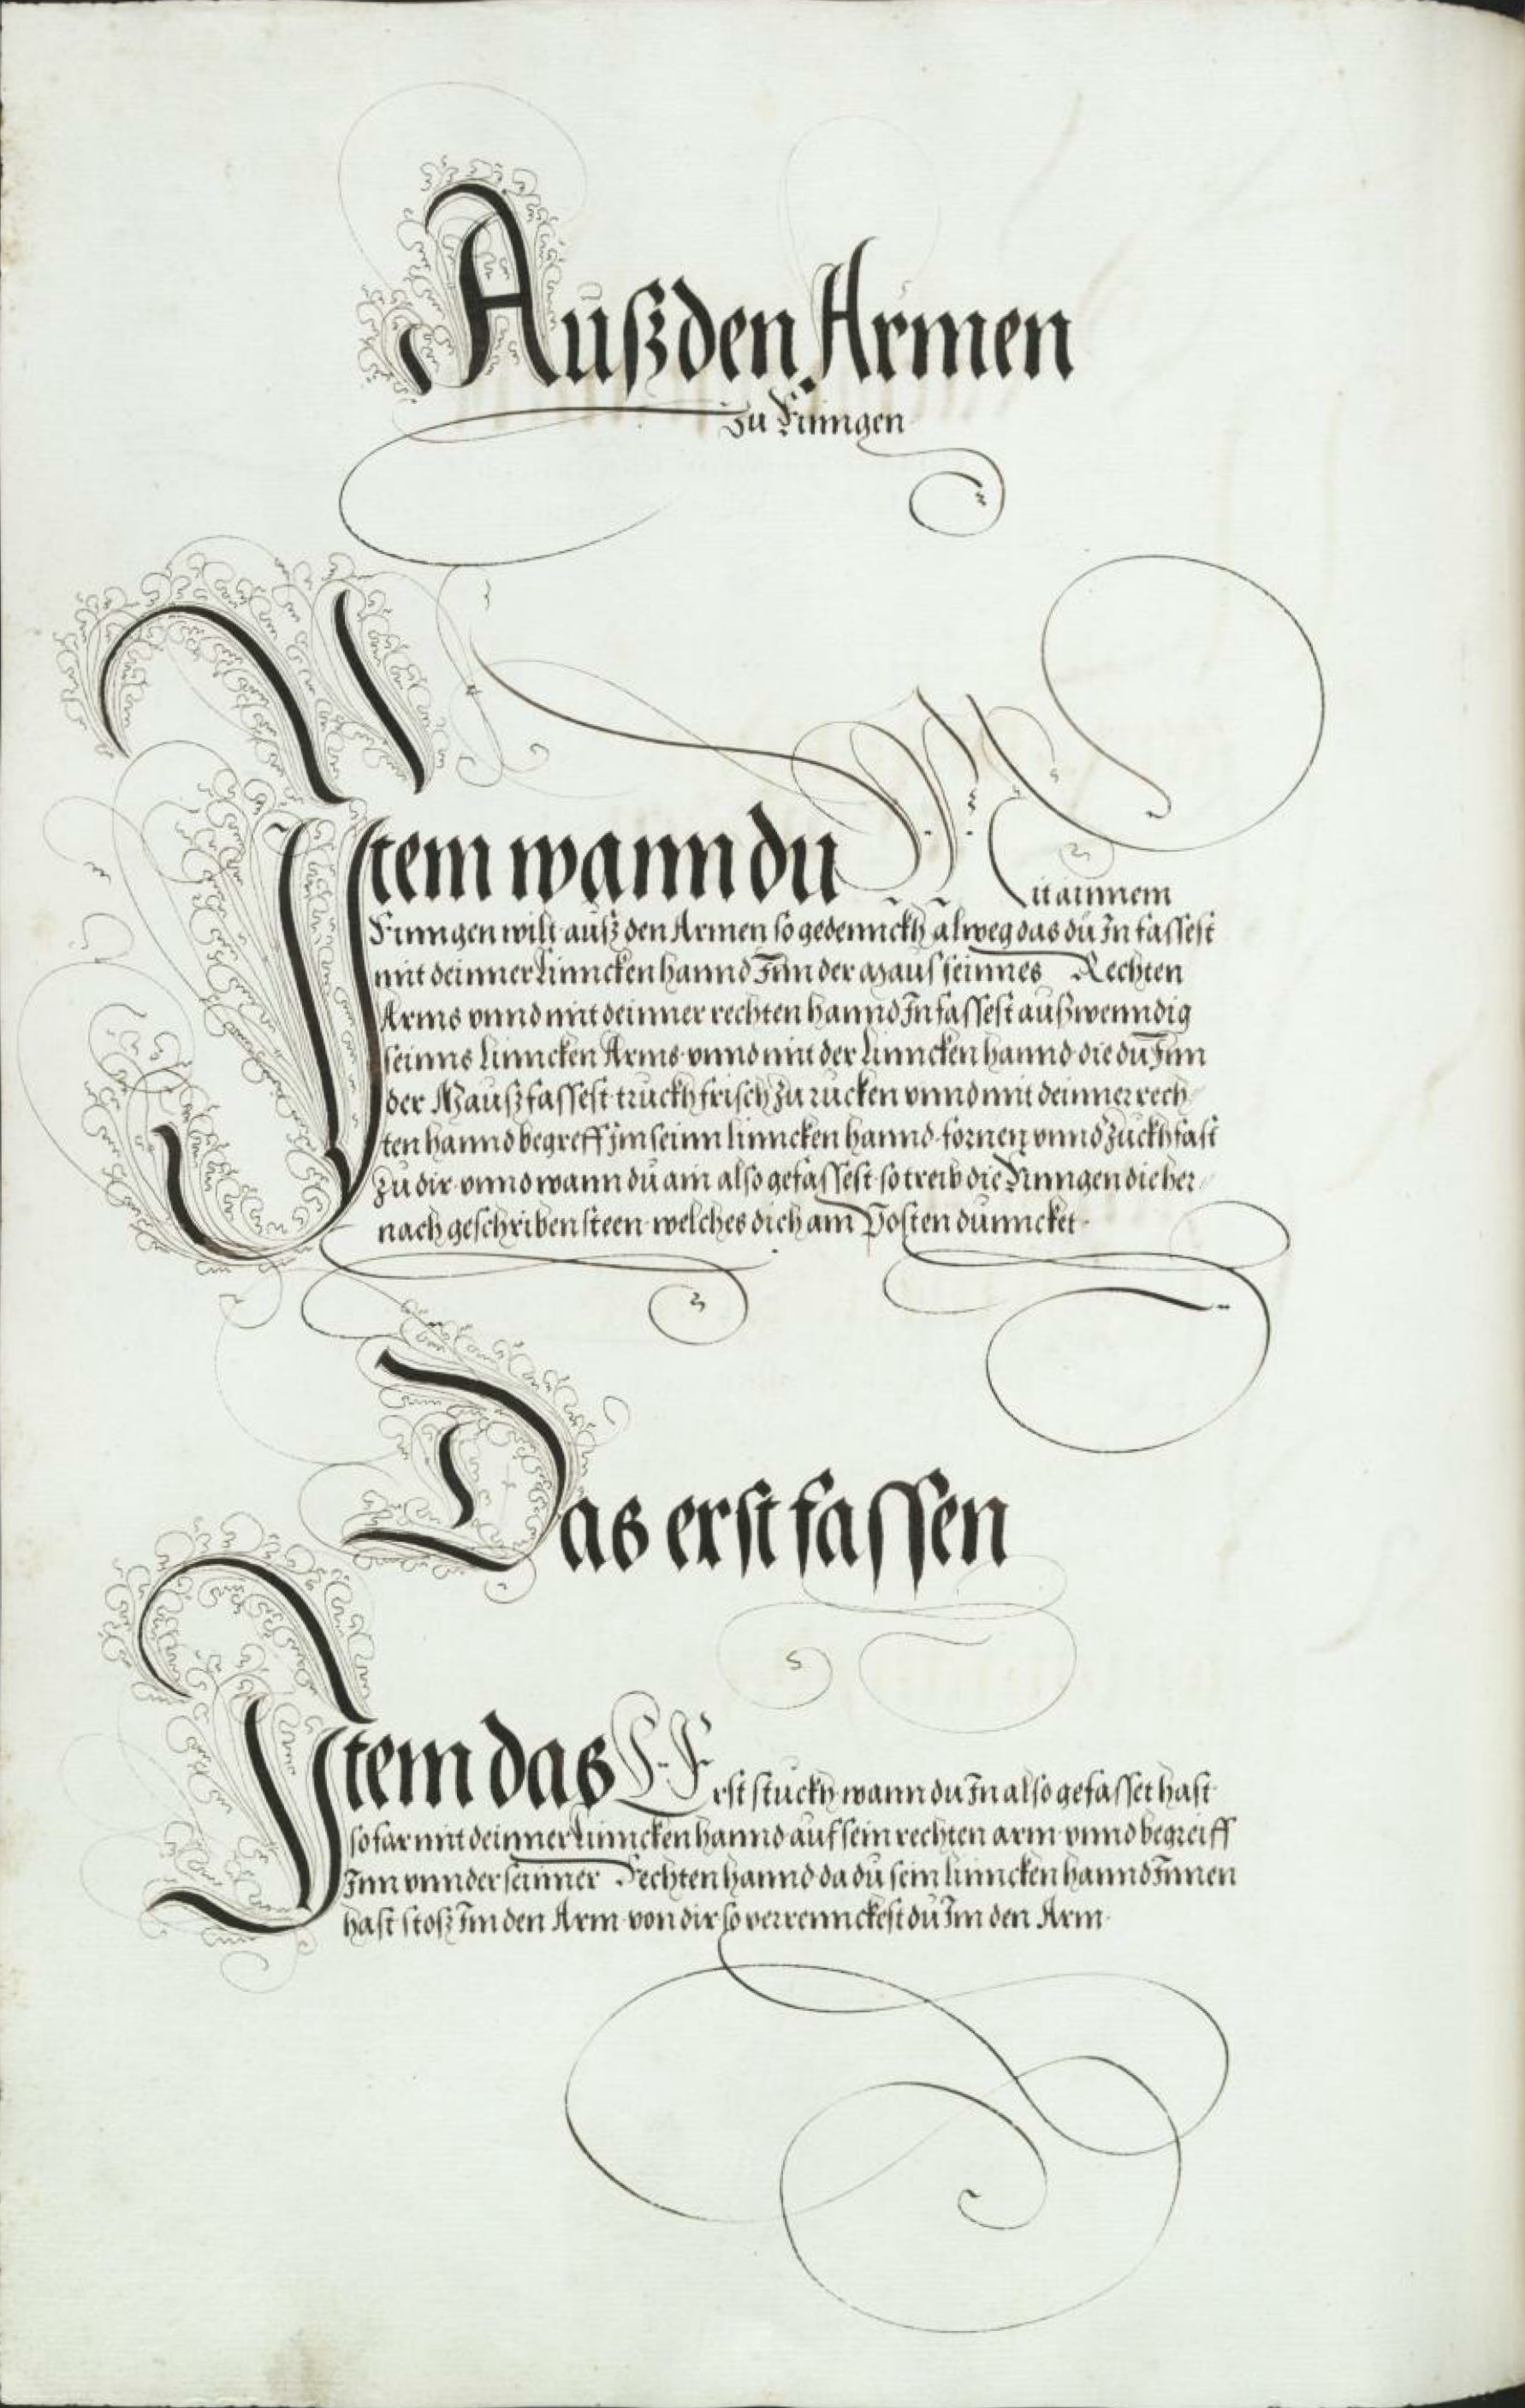 Außden Armen
zu Ringen
Item wann du Mit ainnem
Rinngen wilt auß den Armen so gedennckh alweg das du In fassest
mit deinner linncken hannd Inn der maus seinnes Rechten
Arms vnnd mit deinner rechten hannd In fassest außwenndig
seinns linncken Arms vnnd mit der linncken hannd die du Inn
der Mauß fassest truckh frisch zu rucken vnnd mit deinner rech
ten hannd begreff im sein linncken hannd fornen vnnd zuckh fast
zu dir vnnd wann du ain also gefassest so treib die Rinngen die her
nach geschriben steen welches dich am Posten dunncket
Das erst fassen
Item das Erst stuckh wann du In also gefasset hast
so far mit deinner linncken hannd auf sein rechten arm vnnd begreiff
Inn vnnder seinner Rechten hannd da du sein linncken hannd Innen
hast stoß Im den Arm von dir so verrennckest du Im den Arm